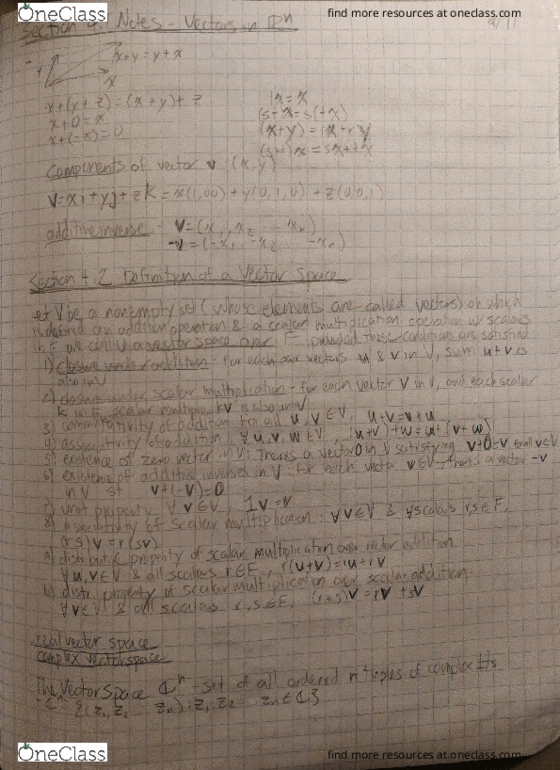 OneClass
find more resources at oneclass.com
Section 4. Notes - Vectors in ℝⁿ
x+y = y+x
x
x+(y+z) = (x+y)+z
x+0=x
x+(-x)=0
1x=x
(st)x=s(tx)
(x+y) = rx+ry
(s+t)x = sx+tx
Components of vector v : (x,y)
v=xi+yj+zk = x(1,0,0) + y(0,1,0) + z(0,0,1)
additive inverse - v=(x₁, x₂ ... xₙ)
-v=(-x₁, -x₂ ... -xₙ)
Section 4.2 Definition of a Vector Space
let V be a nonempty set (whose elements are called vectors) on which
is defined an addition operation & a scalar multiplication operation w/ scalars
in F. we call V a vector space over F, provided these conditions are satisfied
1) closure under addition - For each pair vectors u & v in V, sum u+v is
also in V
2) closure under scalar multiplication - for each vector v in V, and each scalar
k in F, scalar multiple kv is also in V
3) commutativity of addition for all u,v∈V, u+v=v+u
4) associativity of addition : ∀ u,v,w∈V, (u+v)+w=u+(v+w)
5) existence of zero vector in V: Theres a vector 0 in V satisfying v+0=v for all v∈V
6) existence of additive inverses in V: For each vector v∈V, theres a vector -v
in V st v+(-v)=0
7) unit property ∀ v∈V, 1v=v
8) associativity of scalar multiplication : ∀v∈V & ∀scalars r,s∈F,
(rs)v=r(sv)
9) distributive property of scalar multiplication over vector addition
∀u,v∈V & all scalars r∈F, r(u+v)=ru+rv
10) distr. property of scalar multiplication over scalar addition:
∀v∈V & all scalars r,s∈F, (r+s)v=rv+sv
real vector space
complex vector space
The Vector Space ℂⁿ - set of all ordered n-tuples of complex #s
ℂⁿ = {(z₁,z₂ ... zₙ) : z₁, z₂ ... zₙ∈ℂ}
OneClass
find more resources at oneclass.com